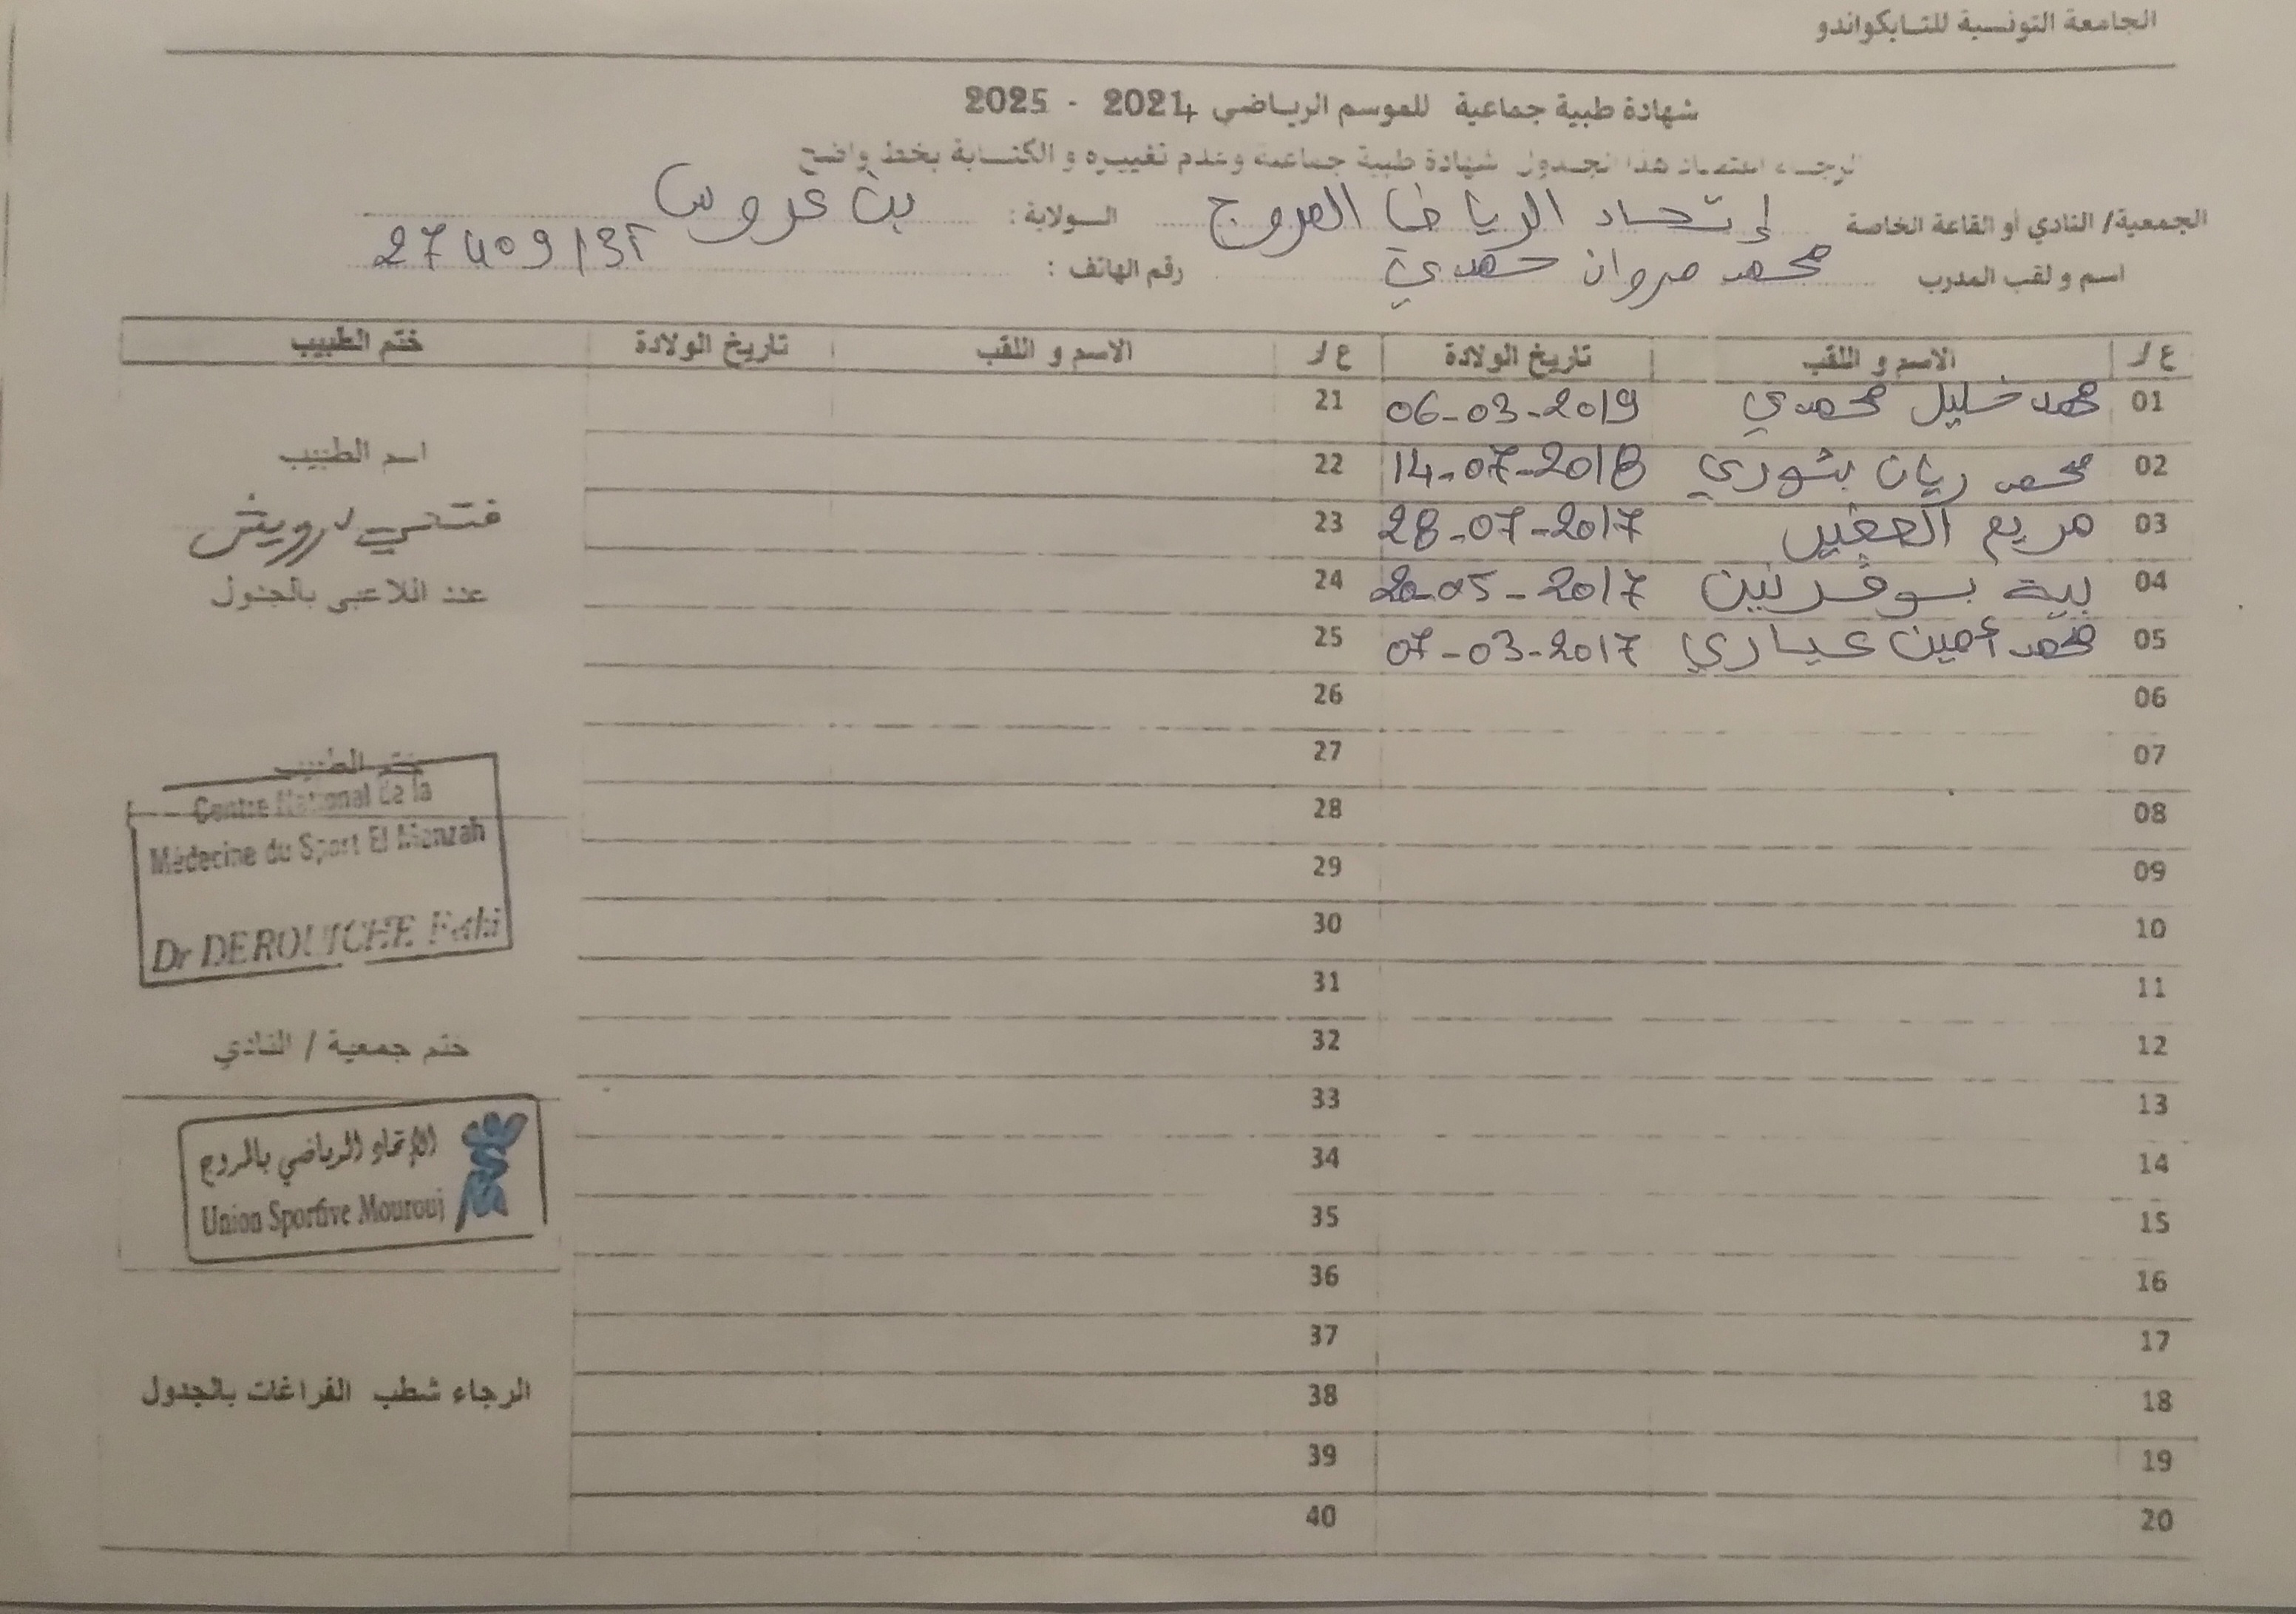 الجامعة التونسية للتايكواندو
شهادة طبية جماعية للموسم الرياضي 2024 - 2025
الرجاء اعتماد هذا الجدول شهادة طبية جماعية وعدم تغييره و الكتابة بخط واضح
الجمعية/ النادي أو القاعة الخاصة إتحاد الرياضي المروج الولاية: بن عروس
اسم و لقب المدرب محمد مروان حمدي رقم الهاتف :
ع/ الاسم و اللقب تاريخ الولادة ع/ الاسم و اللقب تاريخ الولادة ختم الطبيب
01 محمد خليل محمدي 06-03-2019 21
02 محمد ريان بثوري 14-07-2018 22
03 مريم 28-07-2017 23
04 بية بوقرنين 20-05-2017 24
05 محمد أمين عياري 07-03-2017 25
06 26
07 27
08 28
09 29
10 30
11 31
12 32
13 33
14 34
15 35
16 36
17 37
18 38
19 39
20 40
اسم الطبيب
فتحي درويش
عدد اللاعبين بالجدول
ختم الطبيب
Centre National de la
Médecine du Sport El Menzah
Dr DEROUICHE Fethi
ختم جمعية / النادي
الإتحاد الرياضي بالمروج
Union Sportive Mourouj
الرجاء شطب الفراغات بالجدول